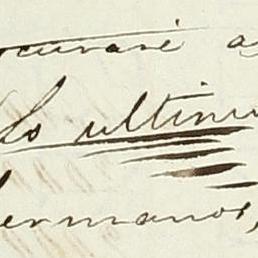 ocuraré a
Lo ultimo
hermanos,